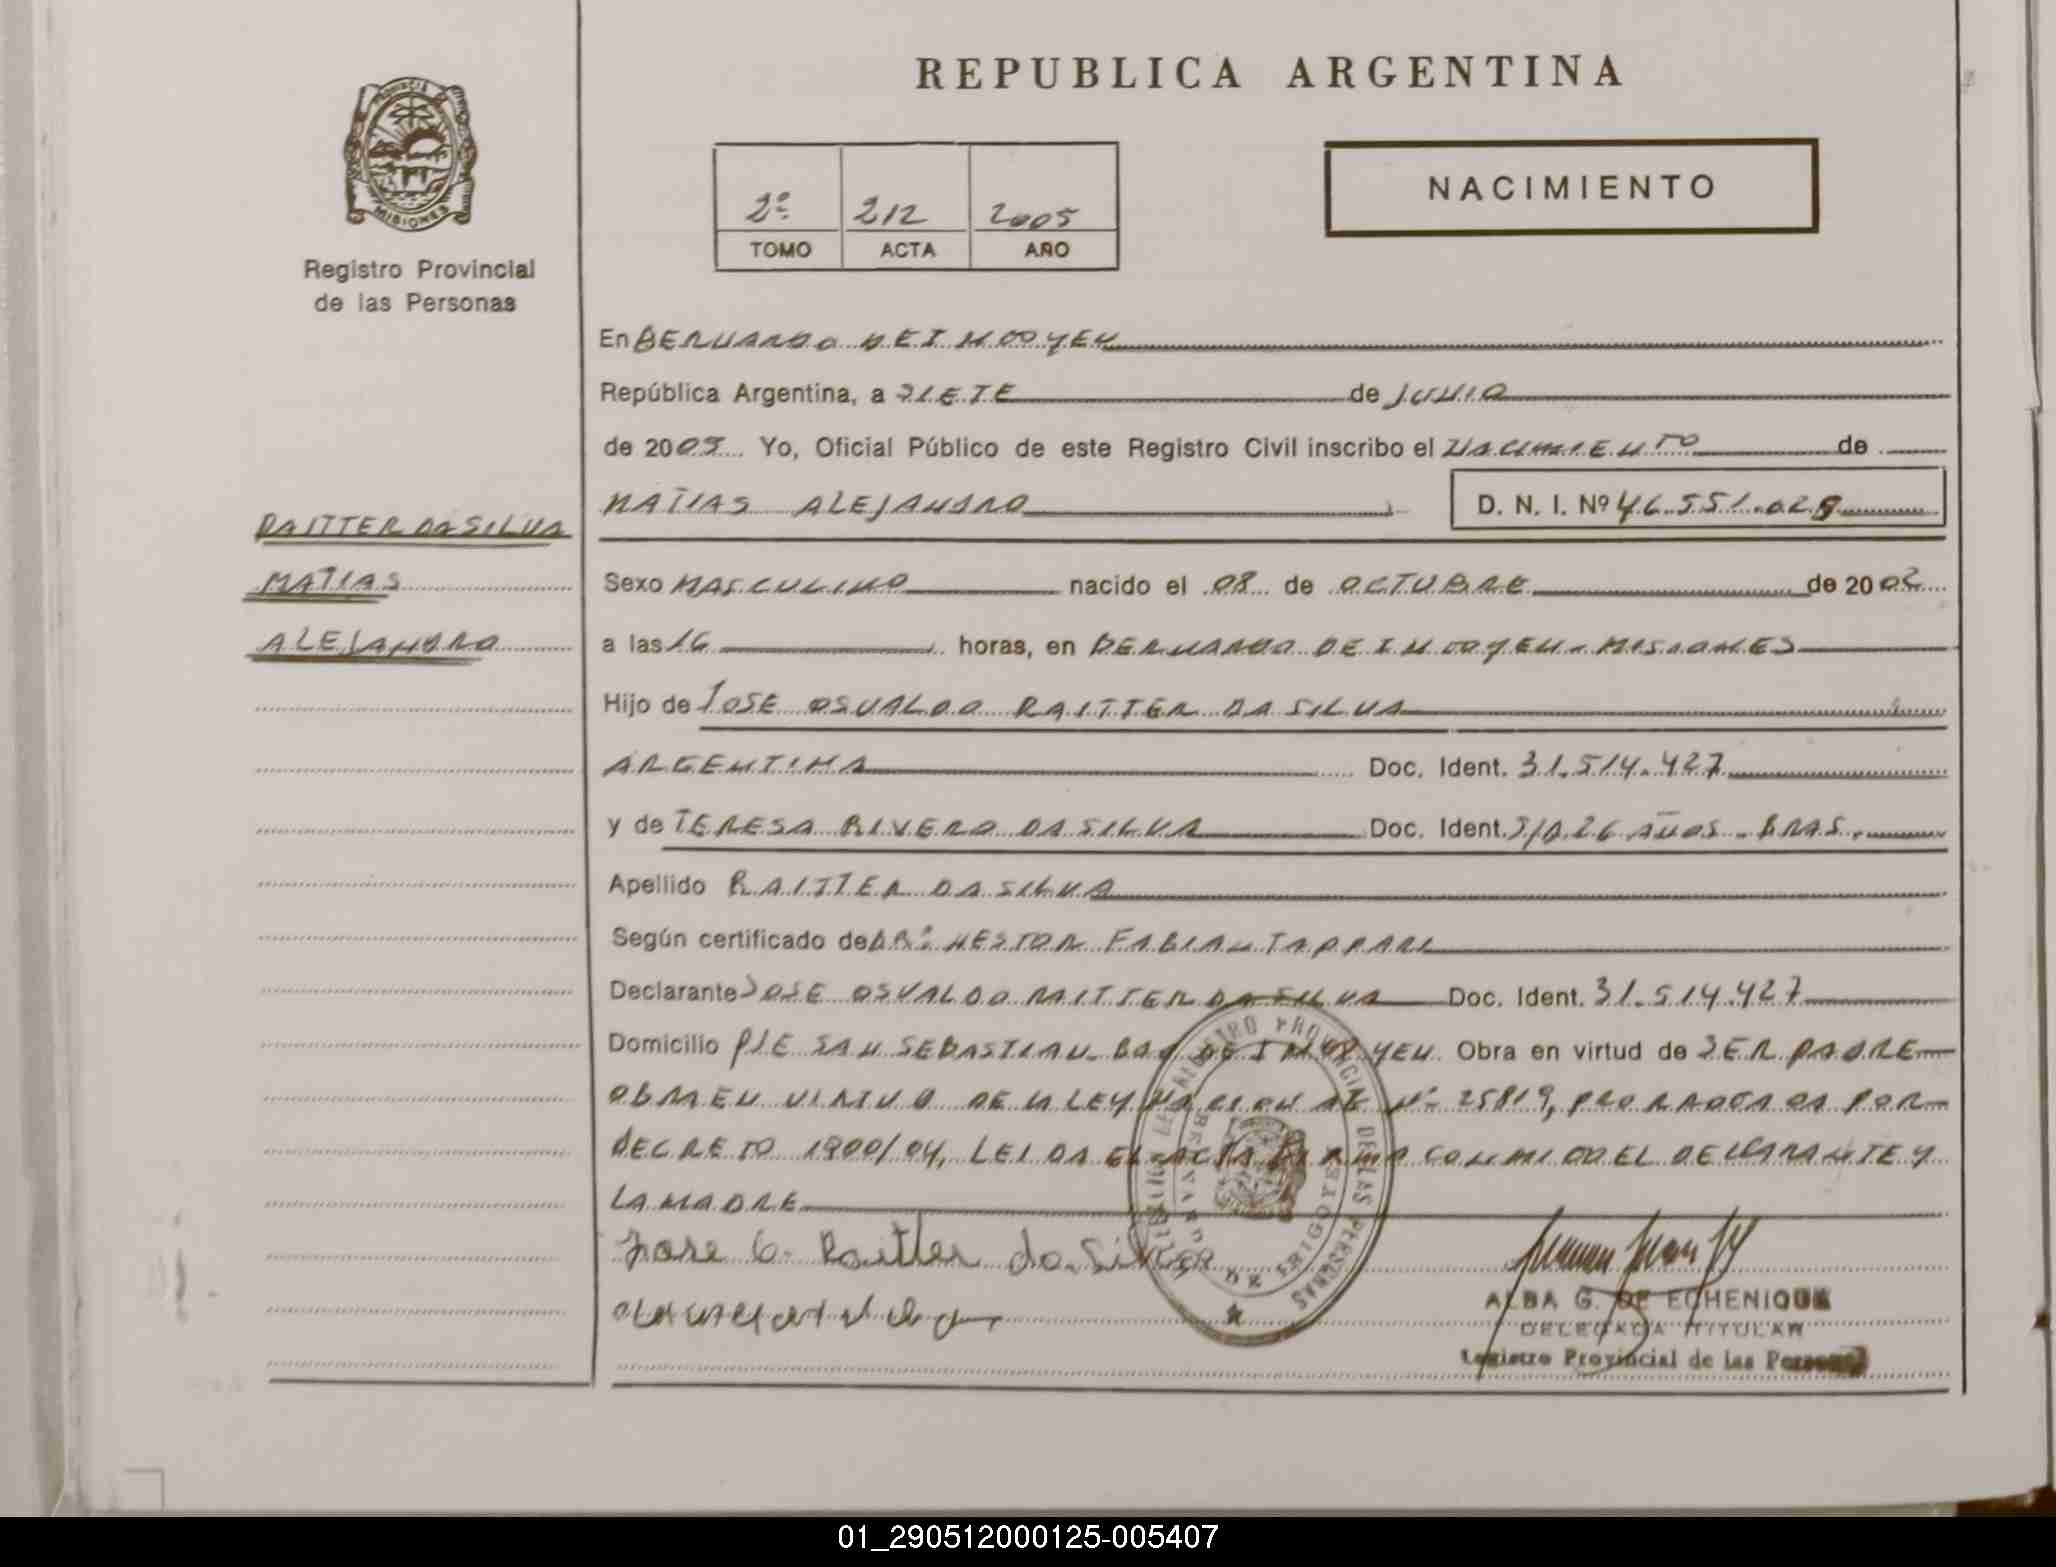 REPUBLICA ARGENTINA
PROVINCIA DE
MISIONES
Registro Provincial
de las Personas
2º 212 2005
TOMO ACTA AÑO
NACIMIENTO
En BERNARDO DE IRIGOYEN
República Argentina, a SIETE de JUNIO
de 2005 Yo, Oficial Público de este Registro Civil inscribo el NACIMIENTO de
MATIAS ALEJANDRO D. N. I. Nº 46.551.028
RAITTER DA SILVA
MATIAS
ALEJANDRO
Sexo MASCULINO nacido el 08 de OCTUBRE de 2002
a las 16 horas, en BERNARDO DE IRIGOYEN - MISIONES
Hijo de JOSE OSVALDO RAITTER DA SILVA
ARGENTINA Doc. Ident. 31.514.427
y de TERESA RIVERO DA SILVA Doc. Ident. S/D. 26 AÑOS - BRAS.
Apellido RAITTER DA SILVA
Según certificado de DR. NESTOR FABIAN TAPPARI
Declarante JOSE OSVALDO RAITTER DA SILVA Doc. Ident. 31.514.427
Domicilio PJE SAN SEBASTIAN - BDO DE IRIGOYEN. Obra en virtud de SER PADRE
OBRA EN VIRTUD DE LA LEY NACIONAL Nº 25819, PRORROGADA POR
DECRETO 1900/04, LEIDA EL ACTA FIRMA CONMIGO EL DECLARANTE Y
LA MADRE
Jose O. Raitter da Silva
REGISTRO PROVINCIAL DE LAS PERSONAS
BERNARDO DE IRIGOYEN
ALBA G. DE ECHENIQUE
DELEGADA TITULAR
Registro Provincial de las Personas
01_290512000125-005407